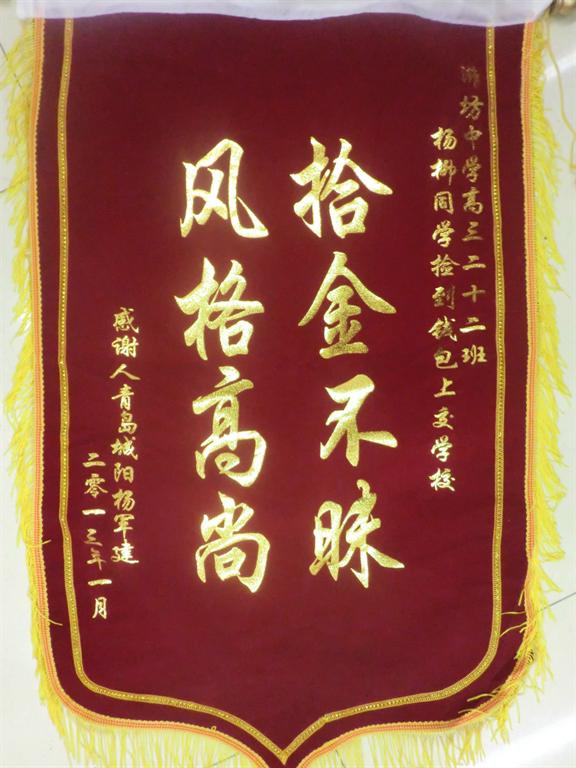 潍坊中学高三二十二班
杨柳同学捡到钱包上交学校
拾金不昧
风格高尚
感谢人青岛城阳杨军建
二零一三年一月